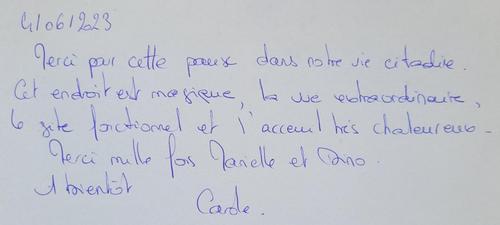 4/06/2023
Merci pour cette pause dans notre vie citadine.
Cet endroit est magique, la vue extraordinaire,
le site fonctionnel et l'acceuil très chaleureux.
Merci mille fois Marielle et
A bientôt
Carole.